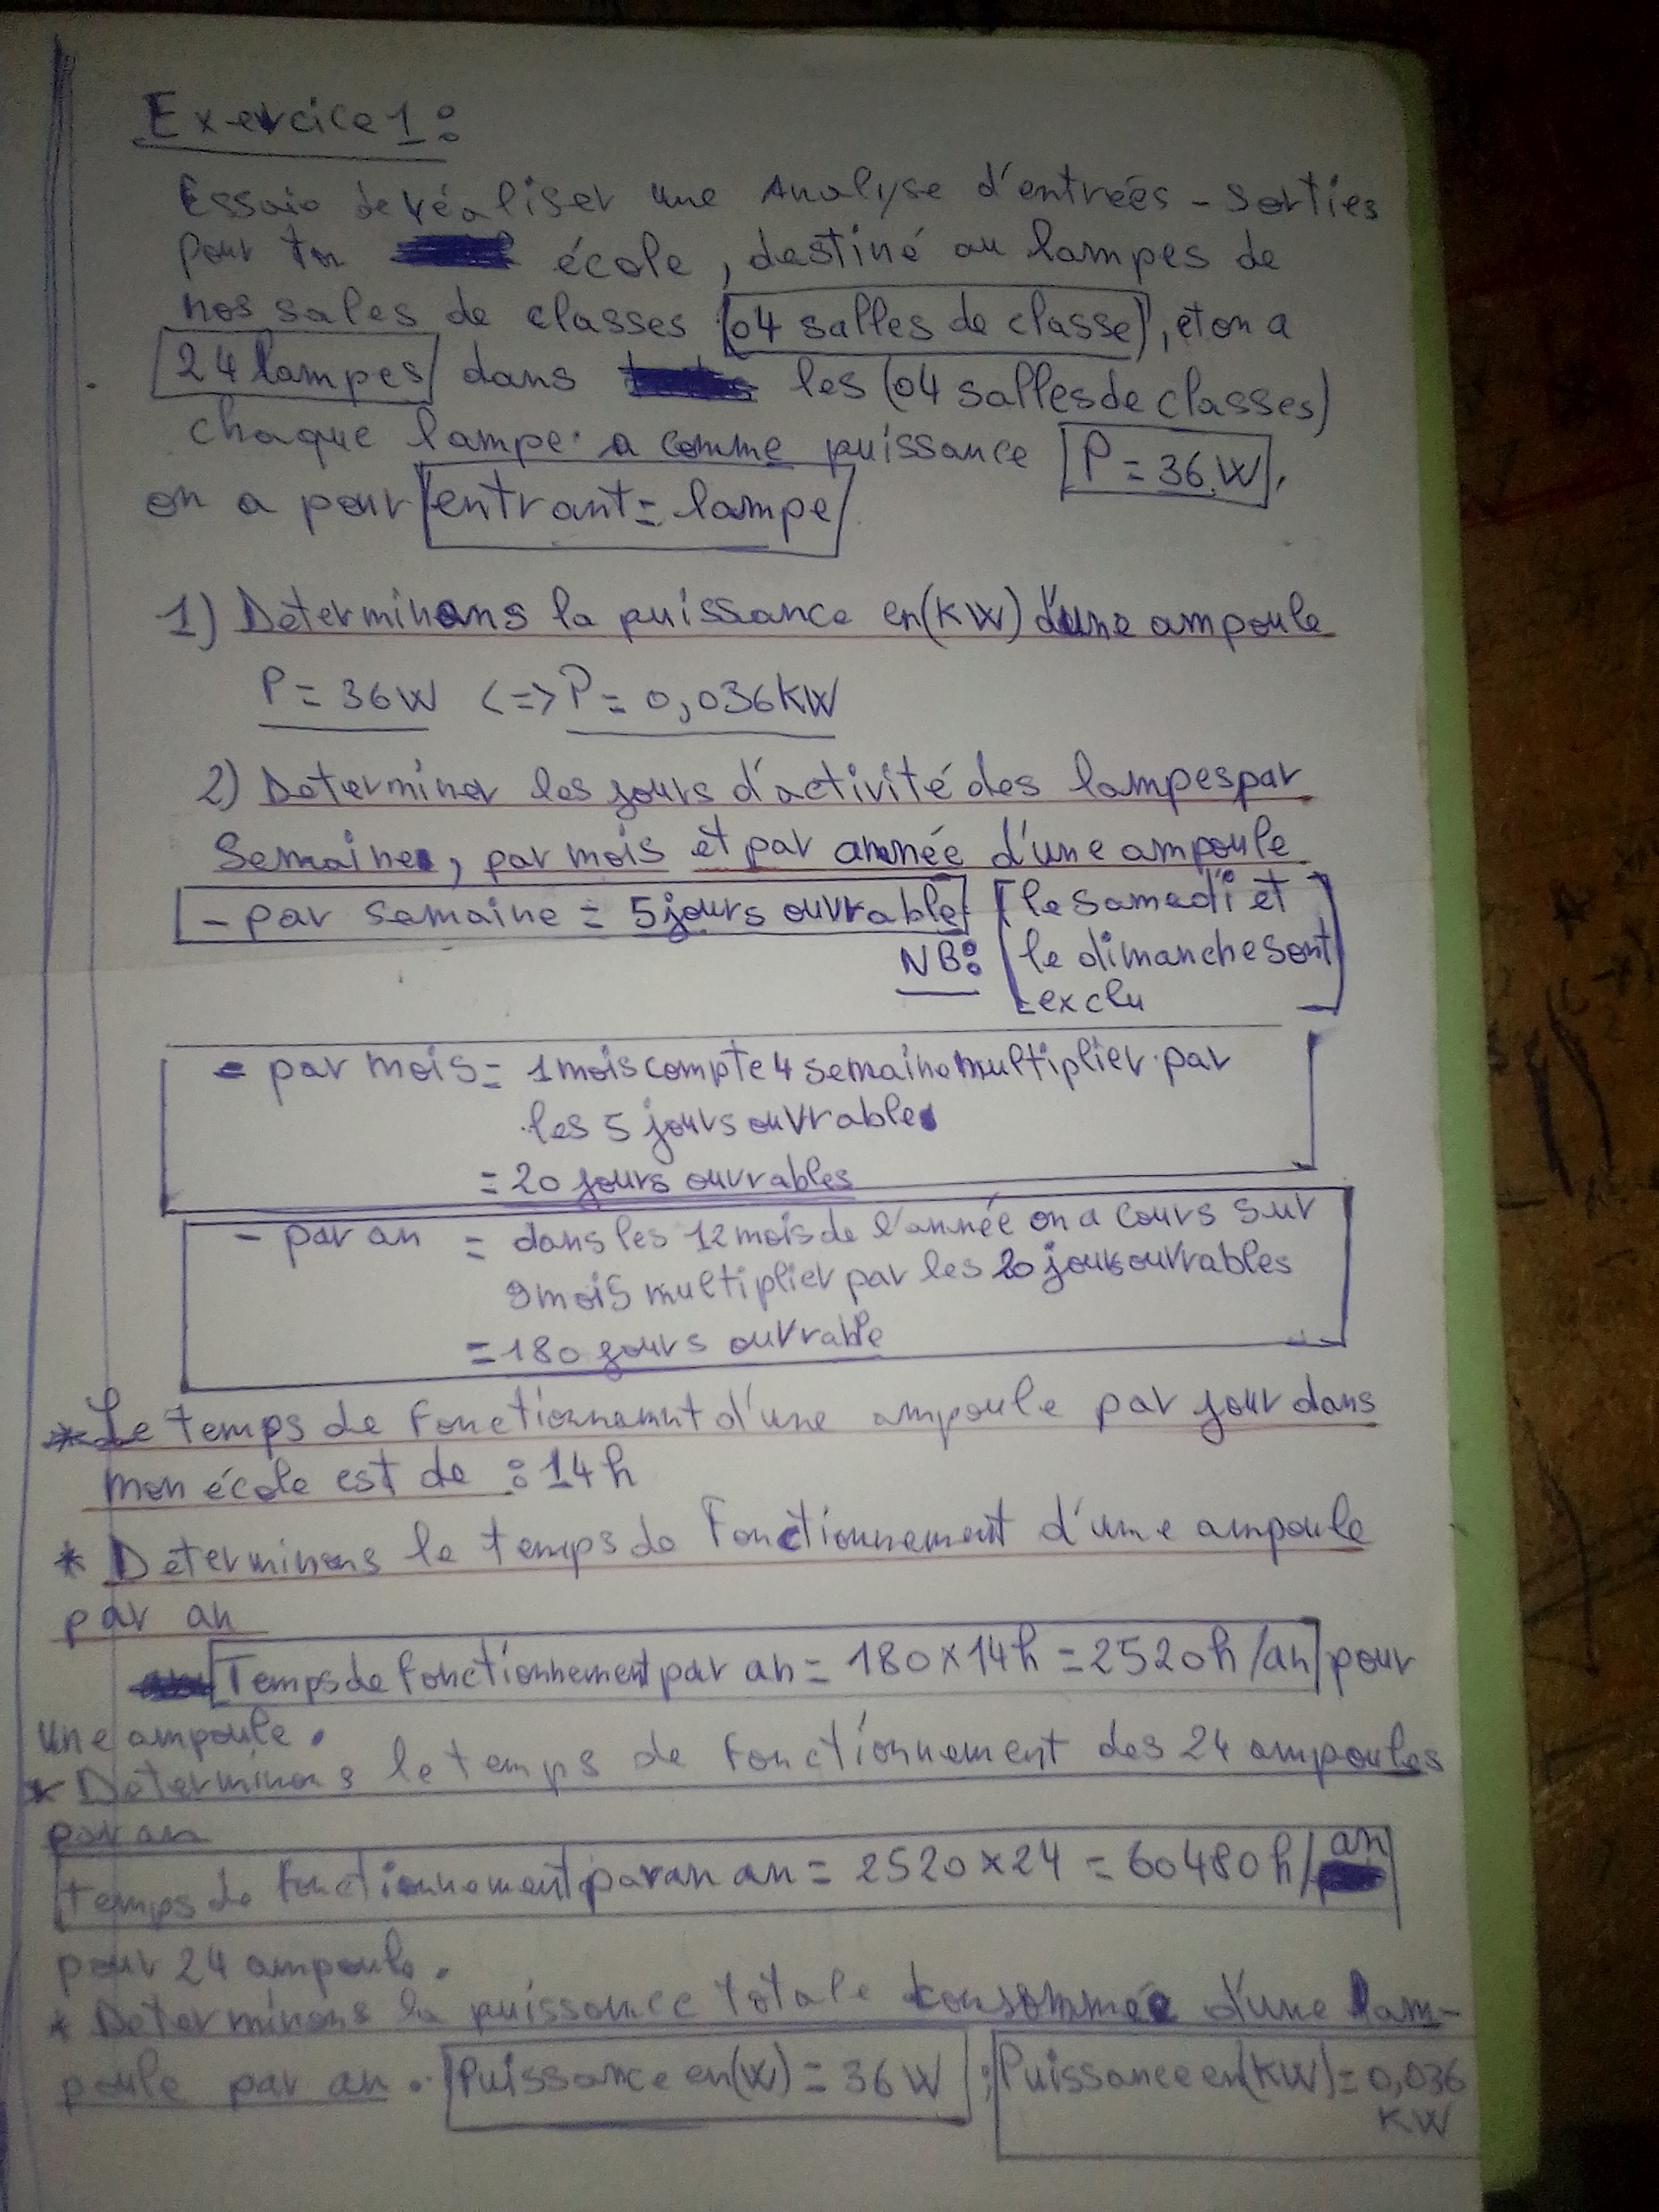 Exercice 1 :
Essaie de réaliser une Analyse d'entrées - sorties
pour ton école, destiné au lampes de
nos sales de classes (04 salles de classe), et on a
24 lampes dans les (04 salles de classes)
chaque lampe a comme puissance P = 36 W,
on a pour entrant = lampe
1) Déterminons la puissance en (KW) d'une ampoule
P = 36 W <=> P = 0,036 KW
2) Determiner les jours d'activité des lampes par
Semaine, par mois et par année d'une ampoule
- par semaine = 5 jours ouvrable [le samedi et
NB: le dimanche sont
exclu]
- par mois = 1 mois compte 4 semaine multiplier par
les 5 jours ouvrable
= 20 jours ouvrables
- par an = dans les 12 mois de l'année on a cours sur
9 mois multiplier par les 20 jours ouvrables
= 180 jours ouvrable
* Le temps de fonctionnement d'une ampoule par jour dans
mon école est de : 14 h
* Determinons le temps de fonctionnement d'une ampoule
par an
Temps de fonctionnement par an = 180 x 14 h = 2520 h /an pour
une ampoule.
* Determinons le temps de fonctionnement des 24 ampoules
par an
temps de fonctionnement par an an = 2520 x 24 = 60480 h / an
pour 24 ampoule.
* Determinons la puissance totale consommée d'une lam-
poule par an. Puissance en (W) = 36 W ; Puissance en (KW) = 0,036
KW